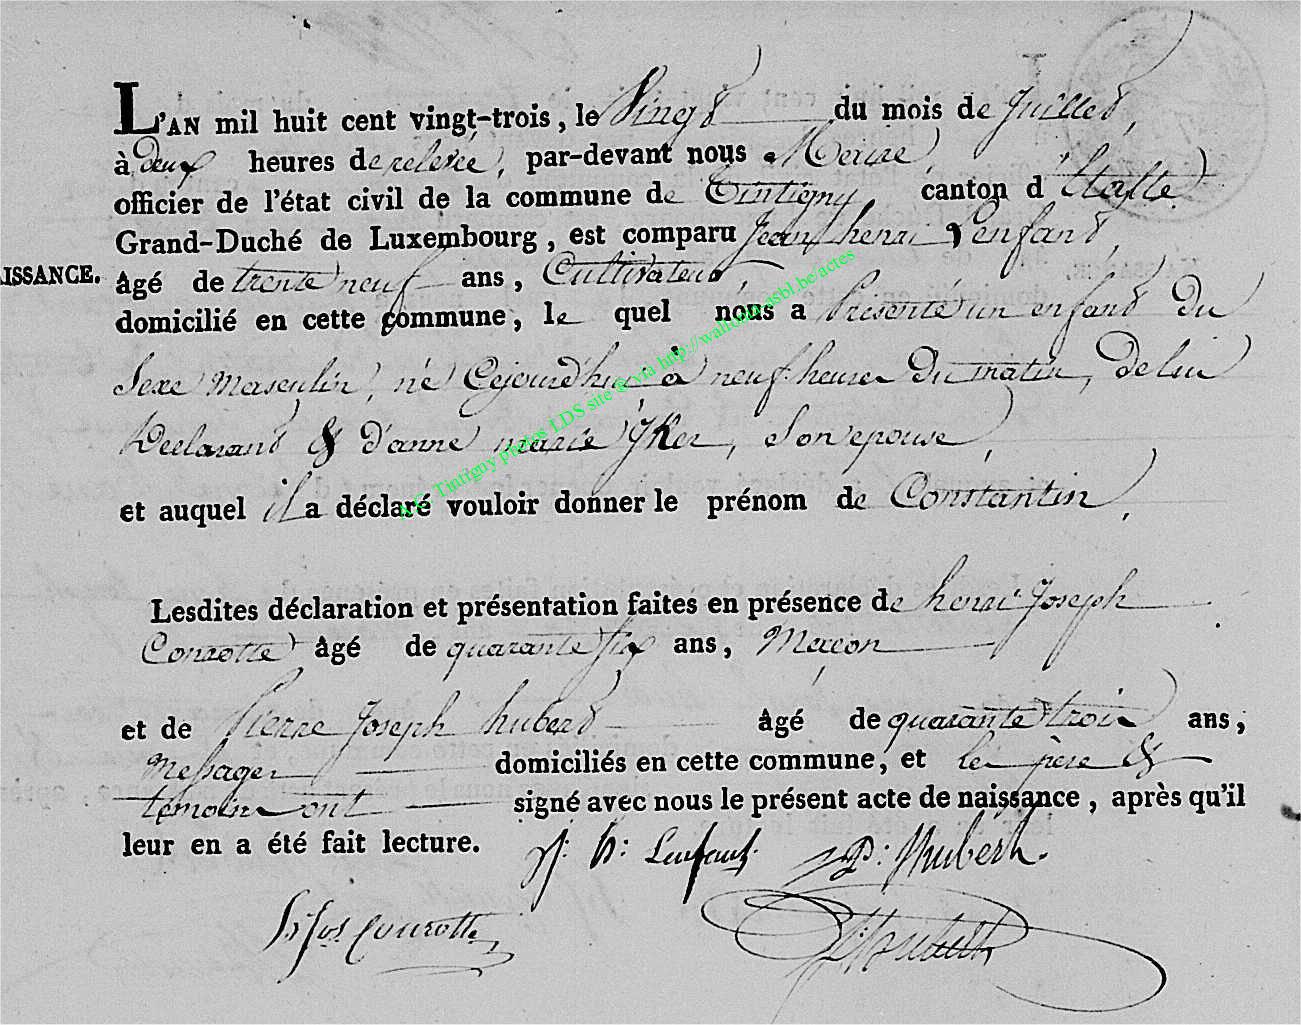 L'AN mil huit cent vingt-trois, le Vingt du mois de Juillet,
à Deux heures de relevée, par-devant nous Meire
officier de l'état civil de la commune de Tintigny canton d'Etalle
Grand-Duché de Luxembourg, est comparu Jean henri Lenfant,
ISSANCE.
âgé de trente neuf ans, Cultivateur
domicilié en cette commune, le quel nous a Présenté un enfant Du
Sexe Masculin, né Cejourd'hui à neuf heures Du matin, De lui
Declarant & d'anne marie Jker, Son epouse,
et auquel il a déclaré vouloir donner le prénom de Constantin,
A.E. Tintigny photos LDS site & via http://wallonia-asbl.be/actes
Lesdites déclaration et présentation faites en présence de henri Joseph
Conrotte âgé de quarante six ans, Macon
et de Pierre Joseph hubert âgé de quarante trois ans,
Messager domiciliés en cette commune, et le père &
témoins ont signé avec nous le présent acte de naissance, après qu'il
leur en a été fait lecture.
J: h: Lenfant. P: J hubert.
h jos Conrotte